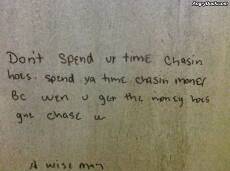 Don't spend ur time chasin
hoes. spend ya time chasin money
Bc wen u get the money hoes
gne chase u
A wise man